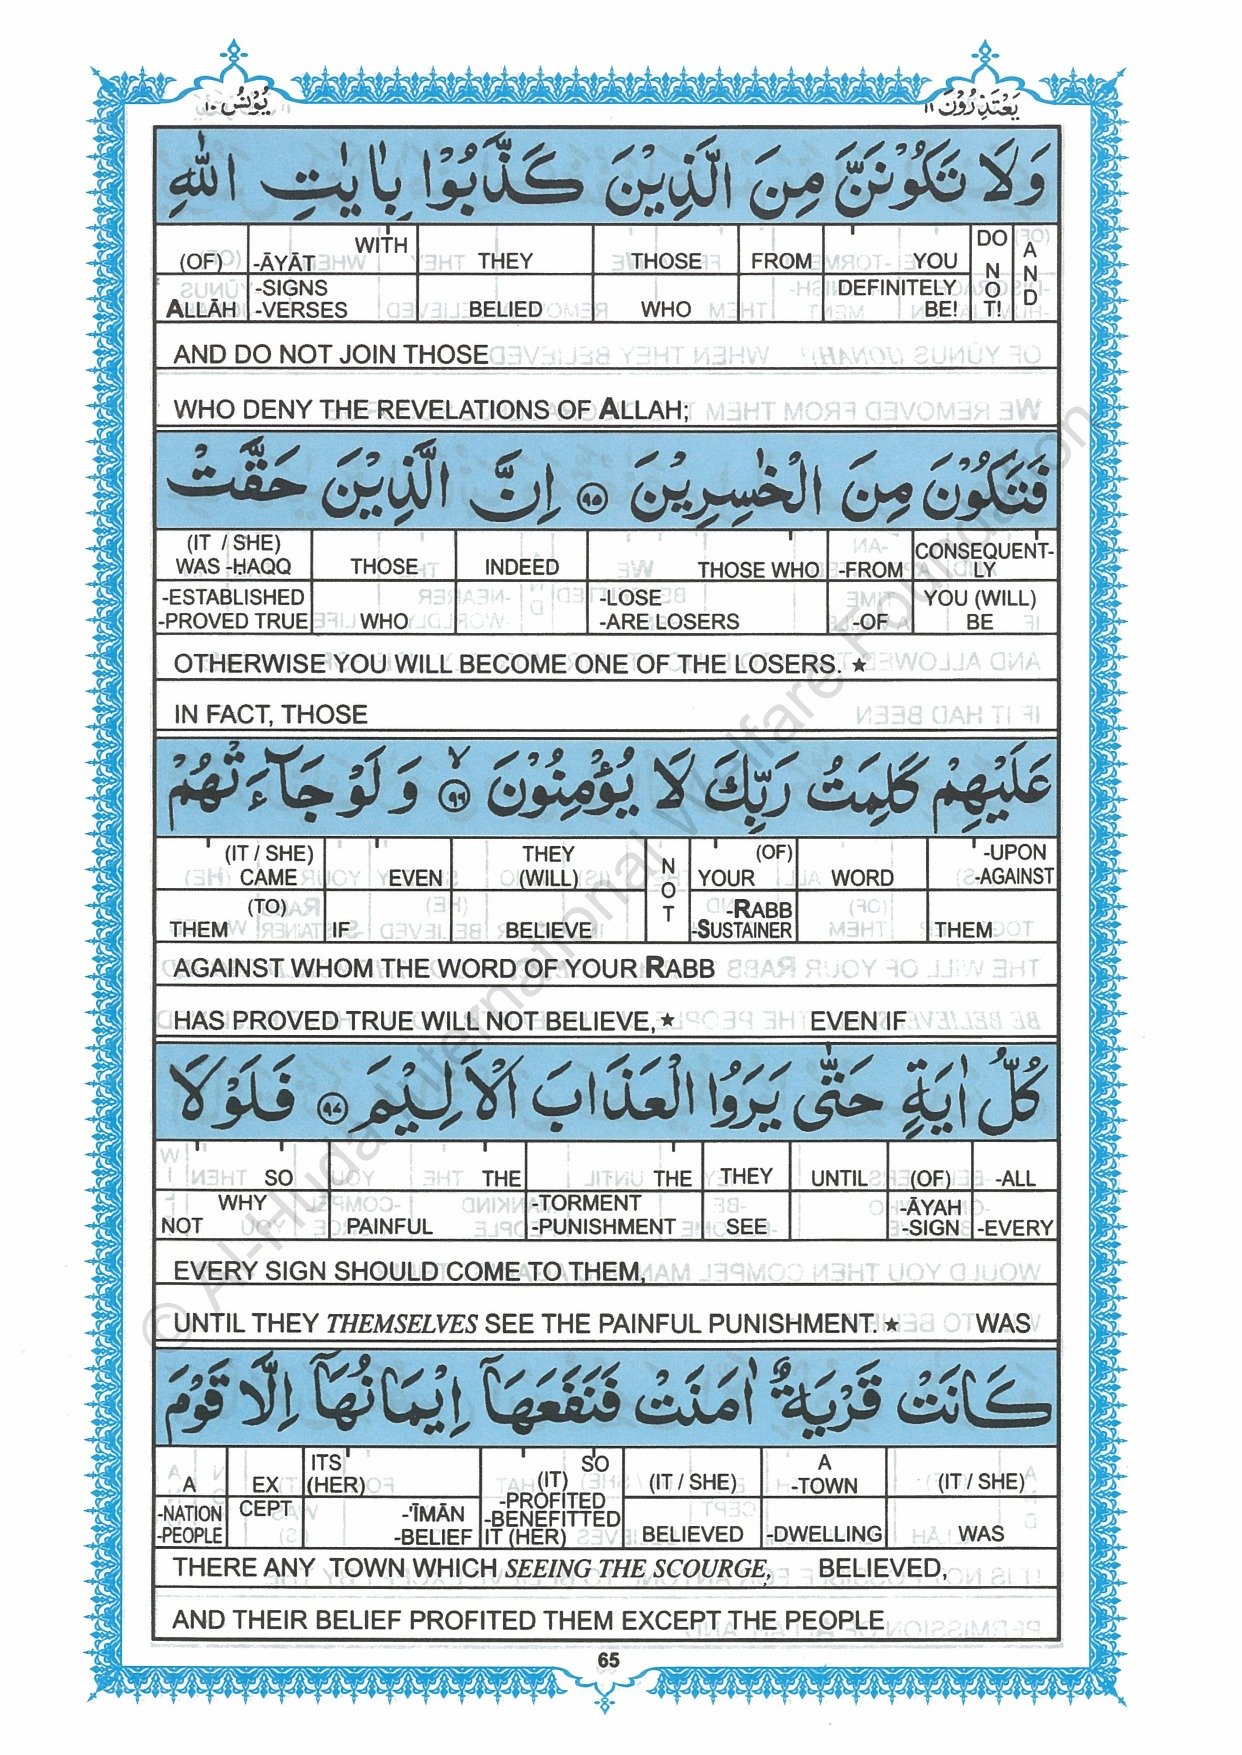 يَعْتَذِرُوْنَ ١١
يُوْنُسُ ١٠
وَلَا تَكُوْنَنَّ مِنَ الَّذِيْنَ كَذَّبُوْا بِاٰيٰتِ اللّٰهِ
(OF) -ĀYĀT WITH THEY THOSE FROM YOU DO NOT! AND
ALLĀH -SIGNS -VERSES BELIED WHO DEFINITELY BE!
AND DO NOT JOIN THOSE
WHO DENY THE REVELATIONS OF ALLAH;
فَتَكُوْنَ مِنَ الْخٰسِرِيْنَ ۝٩٥ اِنَّ الَّذِيْنَ حَقَّتْ
(IT / SHE) WAS -ḤAQQ THOSE INDEED THOSE WHO -FROM CONSEQUENT-LY
-ESTABLISHED -PROVED TRUE WHO -LOSE -ARE LOSERS -OF YOU (WILL) BE
OTHERWISE YOU WILL BECOME ONE OF THE LOSERS. ★
IN FACT, THOSE
عَلَيْهِمْ كَلِمَتُ رَبِّكَ لَا يُؤْمِنُوْنَ ۝٩٦ۙ وَلَوْ جَآءَتْهُمْ
(IT / SHE) CAME EVEN THEY (WILL) NOT YOUR (OF) WORD -UPON -AGAINST
THEM (TO) IF BELIEVE -RABB -SUSTAINER THEM
AGAINST WHOM THE WORD OF YOUR RABB
HAS PROVED TRUE WILL NOT BELIEVE, ★ EVEN IF
كُلُّ اٰيَةٍ حَتّٰى يَرَوُا الْعَذَابَ الْاَلِيْمَ ۝٩٧ فَلَوْلَا
SO THE THE THEY UNTIL (OF) -ALL
NOT WHY PAINFUL -TORMENT -PUNISHMENT SEE -ĀYAH -SIGN -EVERY
EVERY SIGN SHOULD COME TO THEM,
UNTIL THEY THEMSELVES SEE THE PAINFUL PUNISHMENT. ★ WAS
كَانَتْ قَرْيَةٌ اٰمَنَتْ فَنَفَعَهَاۤ اِيْمَانُهَاۤ اِلَّا قَوْمَ
A EXCEPT ITS (HER) SO (IT) (IT / SHE) A -TOWN (IT / SHE)
-NATION -PEOPLE -'ĪMĀN -BELIEF -PROFITED -BENEFITTED IT (HER) BELIEVED -DWELLING WAS
THERE ANY TOWN WHICH SEEING THE SCOURGE, BELIEVED,
AND THEIR BELIEF PROFITED THEM EXCEPT THE PEOPLE
65
© Al-Huda International Welfare Foundation